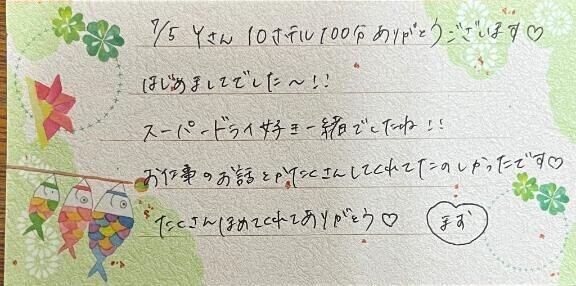 7/5 Yさん 10ホテル100分ありがとうございます♡
はじめましてでした〜!!
スーパードライ好き一緒でしたね!!
お仕事のお話とかたくさんしてくれてたのしかったです♡
たくさんほめてくれてありがとう♡ まお